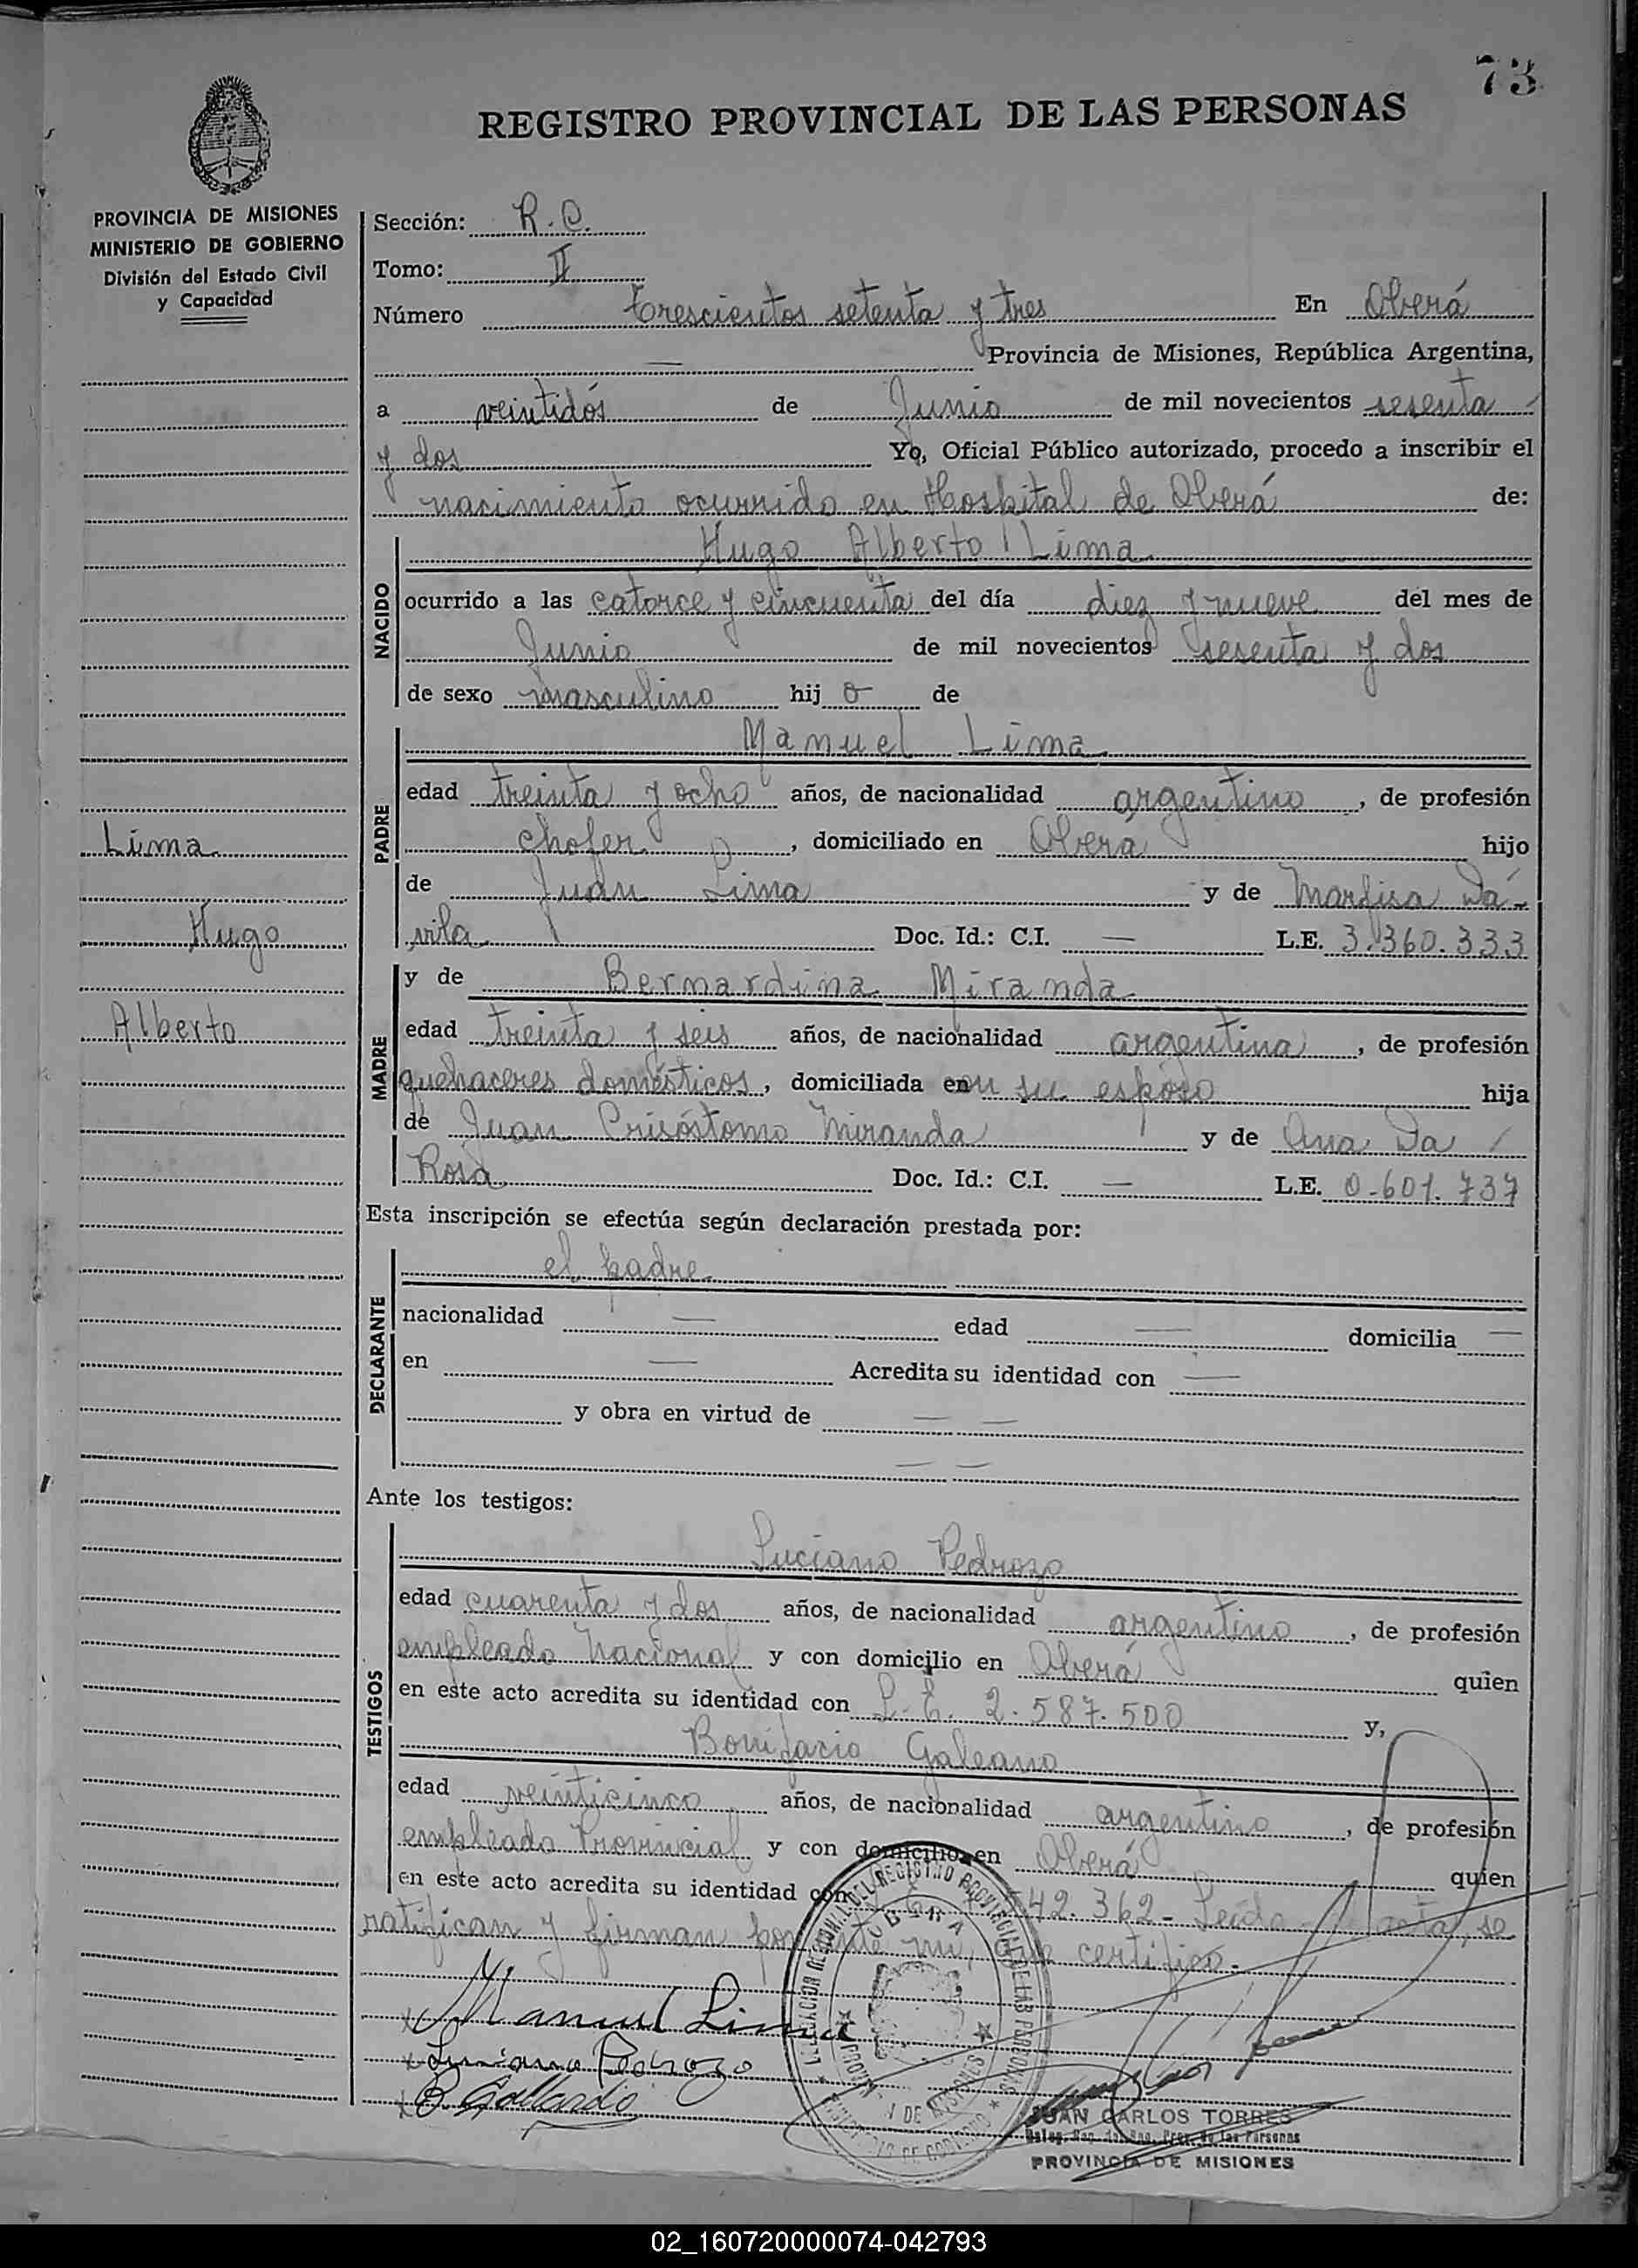 73
REGISTRO PROVINCIAL DE LAS PERSONAS
PROVINCIA DE MISIONES
MINISTERIO DE GOBIERNO
División del Estado Civil
y Capacidad
Sección: R. C.
Tomo: II
Número trescientos setenta y tres En Oberá
— Provincia de Misiones, República Argentina,
a veintidós de Junio de mil novecientos sesenta
y dos Yo, Oficial Público autorizado, procedo a inscribir el
nacimiento ocurrido en Hospital de Oberá de:
NACIDO
Hugo Alberto Lima
ocurrido a las catorce y cincuenta del día diez y nueve del mes de
Junio de mil novecientos sesenta y dos
de sexo masculino hij o de
PADRE
Manuel Lima
edad treinta y ocho años, de nacionalidad argentino, de profesión
chofer, domiciliado en Oberá hijo
de Juan Lima y de Dá-
vila Doc. Id.: C.I. — L.E. 3.360.333
MADRE
y de Bernardina Miranda
edad treinta y seis años, de nacionalidad argentina, de profesión
quehaceres domésticos, domiciliada en su esposo hija
de Juan Crisóstomo Miranda y de Ana Da
Rosa Doc. Id.: C.I. — L.E. 0-601.737
Lima
Hugo
Alberto
Esta inscripción se efectúa según declaración prestada por:
DECLARANTE
el padre
nacionalidad — edad — domicilia —
en — Acredita su identidad con —
y obra en virtud de — —
— —
Ante los testigos:
TESTIGOS
Luciano Pedrozo
edad cuarenta y dos años, de nacionalidad argentino, de profesión
empleado Nacional y con domicilio en Oberá quien
en este acto acredita su identidad con L. E. 2.587.500 y,
Bonifacio Galeano
edad veinticinco años, de nacionalidad argentino, de profesión
empleado Provincial y con domicilio en Oberá quien
en este acto acredita su identidad con 542.362- Leída acta, se
ratifican y firman por ante mí, que certifico-
Manuel Lima
Luciano Pedrozo
OBERA
JUAN CARLOS TORRES
PROVINCIA DE MISIONES
02_160720000074-042793